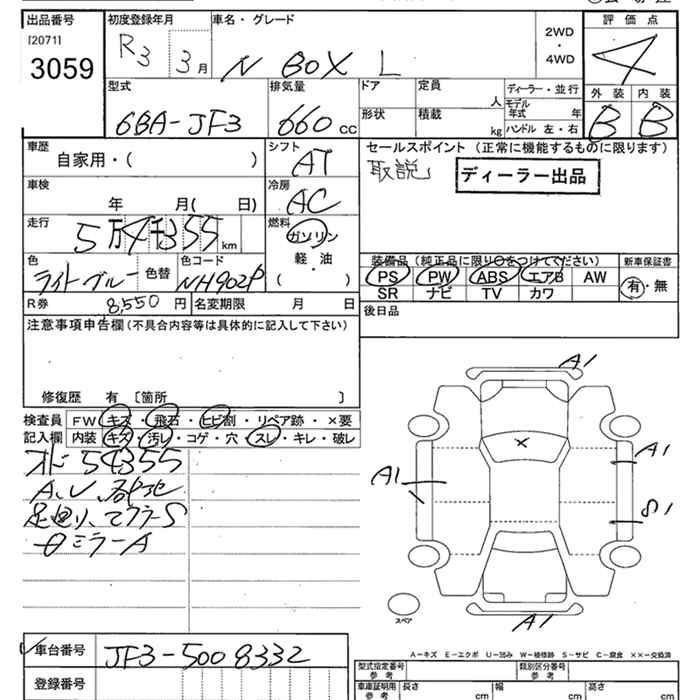 出品番号
[2071]
3059
初度登録年月
R3 3月
車名・グレード
N BOX L
2WD
・
4WD
評価点
4
外装 内装
B B
型式
6BA-JF3
排気量
660 cc
ドア
形状
定員
人
積載
kg
ディーラー・並行
モデル年式 年
ハンドル 左・右
車歴
自家用・( )
車検
年 月( 日)
走行
5万4千355 km
シフト
AT
冷房
AC
燃料
ガソリン
軽・油
( )
色
ライトブルー
色替
色コード
NH902P
R券 8,550 円
名変期限 月 日
セールスポイント (正常に機能するものに限ります)
取説
ディーラー出品
装備品(純正品に限り○をつけてください)
新車保証書
PS PW ABS エアB AW
SR ナビ TV カワ
有・無
後日品
注意事項申告欄(不具合内容等は具体的に記入して下さい)
修復歴 有 〔箇所 〕
検査員記入欄
FW キズ・飛石・ヒビ割・リペア跡・×要
内装 キズ・汚レ・コゲ・穴・スレ・キレ・破レ
オドー 54355
マフラーS
ミラーA
A1
A1
A1
S1
A1
スペア
A-キズ E-エクボ U-凹み W-補修跡 S-サビ C-腐食 ××-交換済
車台番号 JF3-5008332
登録番号
型式指定番号
参考
類別区分番号
参考
車庫証明用
参考
長さ cm 幅 cm 高さ cm